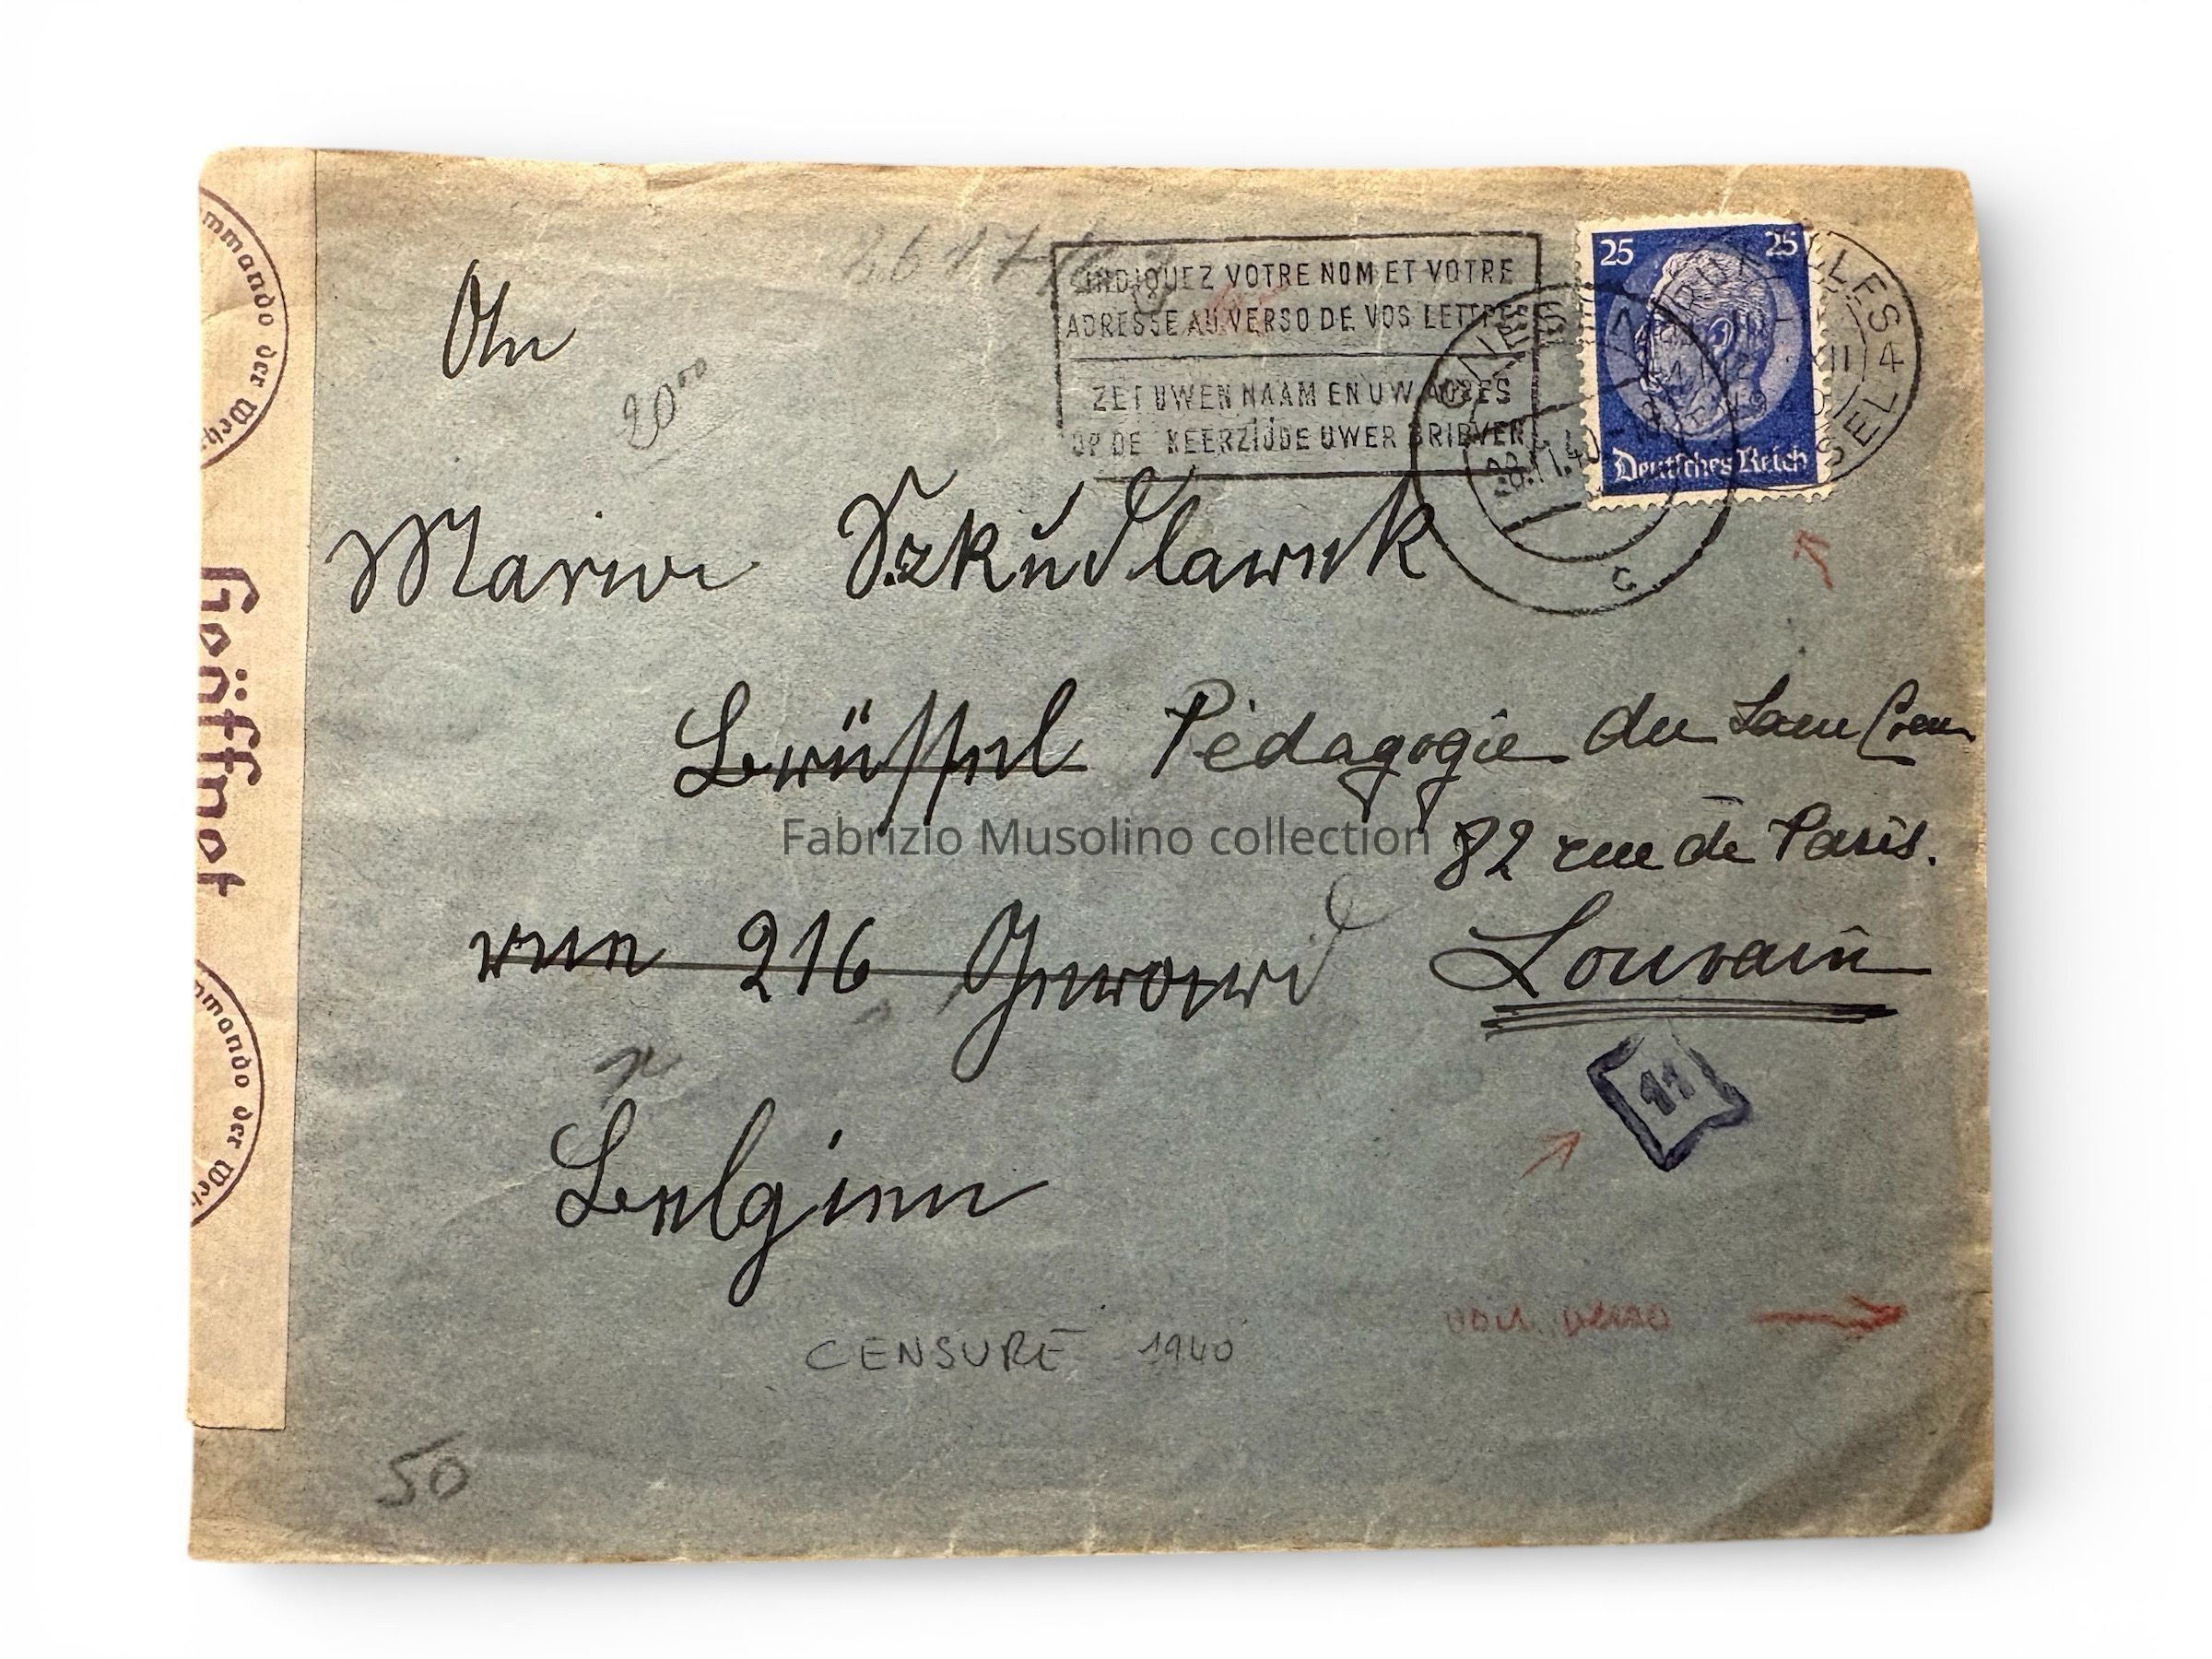 mmando der Weh
Geöffnet
mmando der Weh
2617/63
INDIQUEZ VOTRE NOM ET VOTRE
ADRESSE AU VERSO DE VOS LETTRES
ZET UWEN NAAM EN UW ADRES
OP DE KEERZIJDE UWER BRIEVEN
25 25
Deutsches Reich
LLES 4
SEL
XII
1940
GNESEN
28.11.40
c
An
20⁰⁰
Maria Szkudlarek
Brüssel Pédagogie du
82 rue de Paris.
216
Louvain
11
Belgien
voir verso
CENSURE 1940
50
Fabrizio Musolino collection